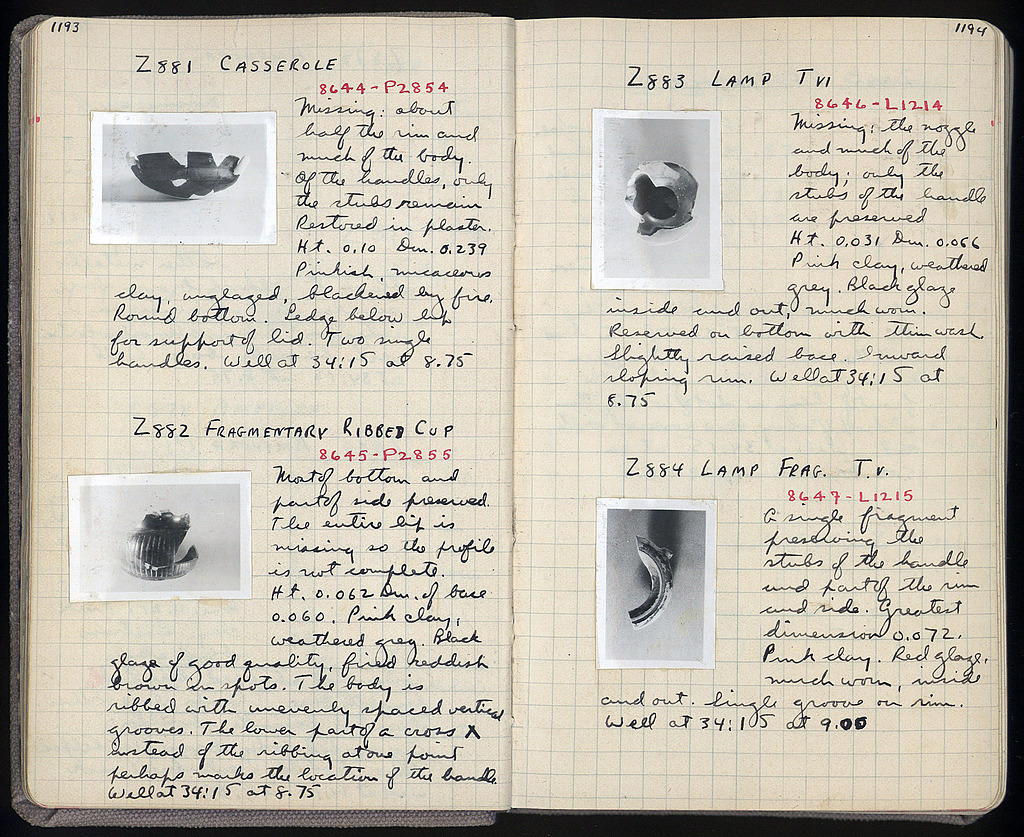 1193
Z881 CASSEROLE
8644-P2854
Missing: about
half the rim and
much of the body.
Of the handles, only
the stubs remain
Restored in plaster.
Ht. 0.10 Dm. 0.239
Pinkish, micaceous
clay, unglazed, blackened by fire.
Round bottom. Ledge below lip
for support of lid. Two single
handles. Well at 34:15 at 8.75
Z882 FRAGMENTARY RIBBED CUP
8645-P2855
Most of bottom and
part of side preserved.
The entire lip is
missing so the profile
is not complete.
Ht. 0.062 Dm. of base
0.060. Pink clay,
weathered grey. Black
glaze of good quality, fired reddish
brown in spots. The body is
ribbed with unevenly spaced vertical
grooves. The lower part of a cross X
instead of the ribbing at one point
perhaps marks the location of the handle
Well at 34:15 at 8.75
1194
Z883 LAMP T VI
8646-L1214
Missing: the nozzle
and much of the
body; only the
stubs of the handle
are preserved
Ht. 0.031 Dm. 0.066
Pink clay, weathered
grey. Black glaze
inside and out, much worn.
Reserved on bottom with thin wash
Slightly raised base. Inward
sloping rim. Well at 34:15 at
8.75
Z884 LAMP FRAG. T.V.
8647-L1215
A single fragment
preserving the
stubs of the handle
and part of the rim
and side. Greatest
dimension 0.072.
Pink clay. Red glaze,
much worn, inside
and out. Single groove on rim.
Well at 34:15 at 9.00